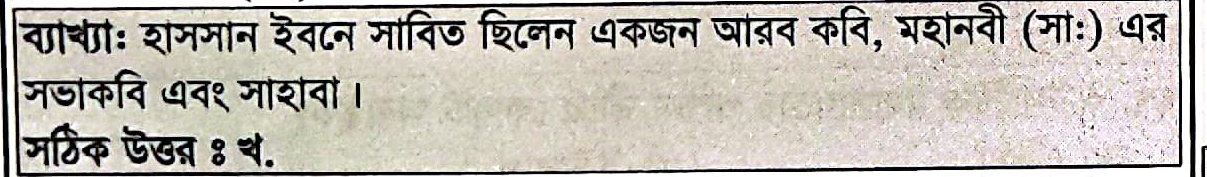 ব্যাখ্যাঃ হাসসান ইবনে সাবিত ছিলেন একজন আরব কবি, মহানবী (সাঃ) এর
সভাকবি এবং সাহাবা।
সঠিক উত্তর ঃ খ.